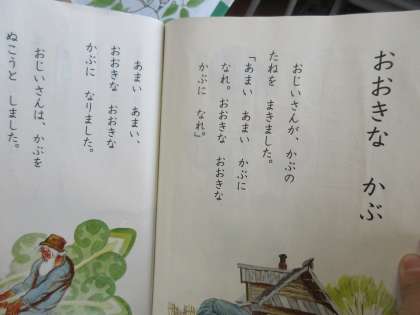 おおきな かぶ
おじいさんが、かぶの
たねを まきました。
「あまい あまい かぶに
なれ。おおきな おおきな
かぶに なれ。」
あまい あまい、
おおきな おおきな
かぶに なりました。
おじいさんは、かぶを
ぬこうと しました。